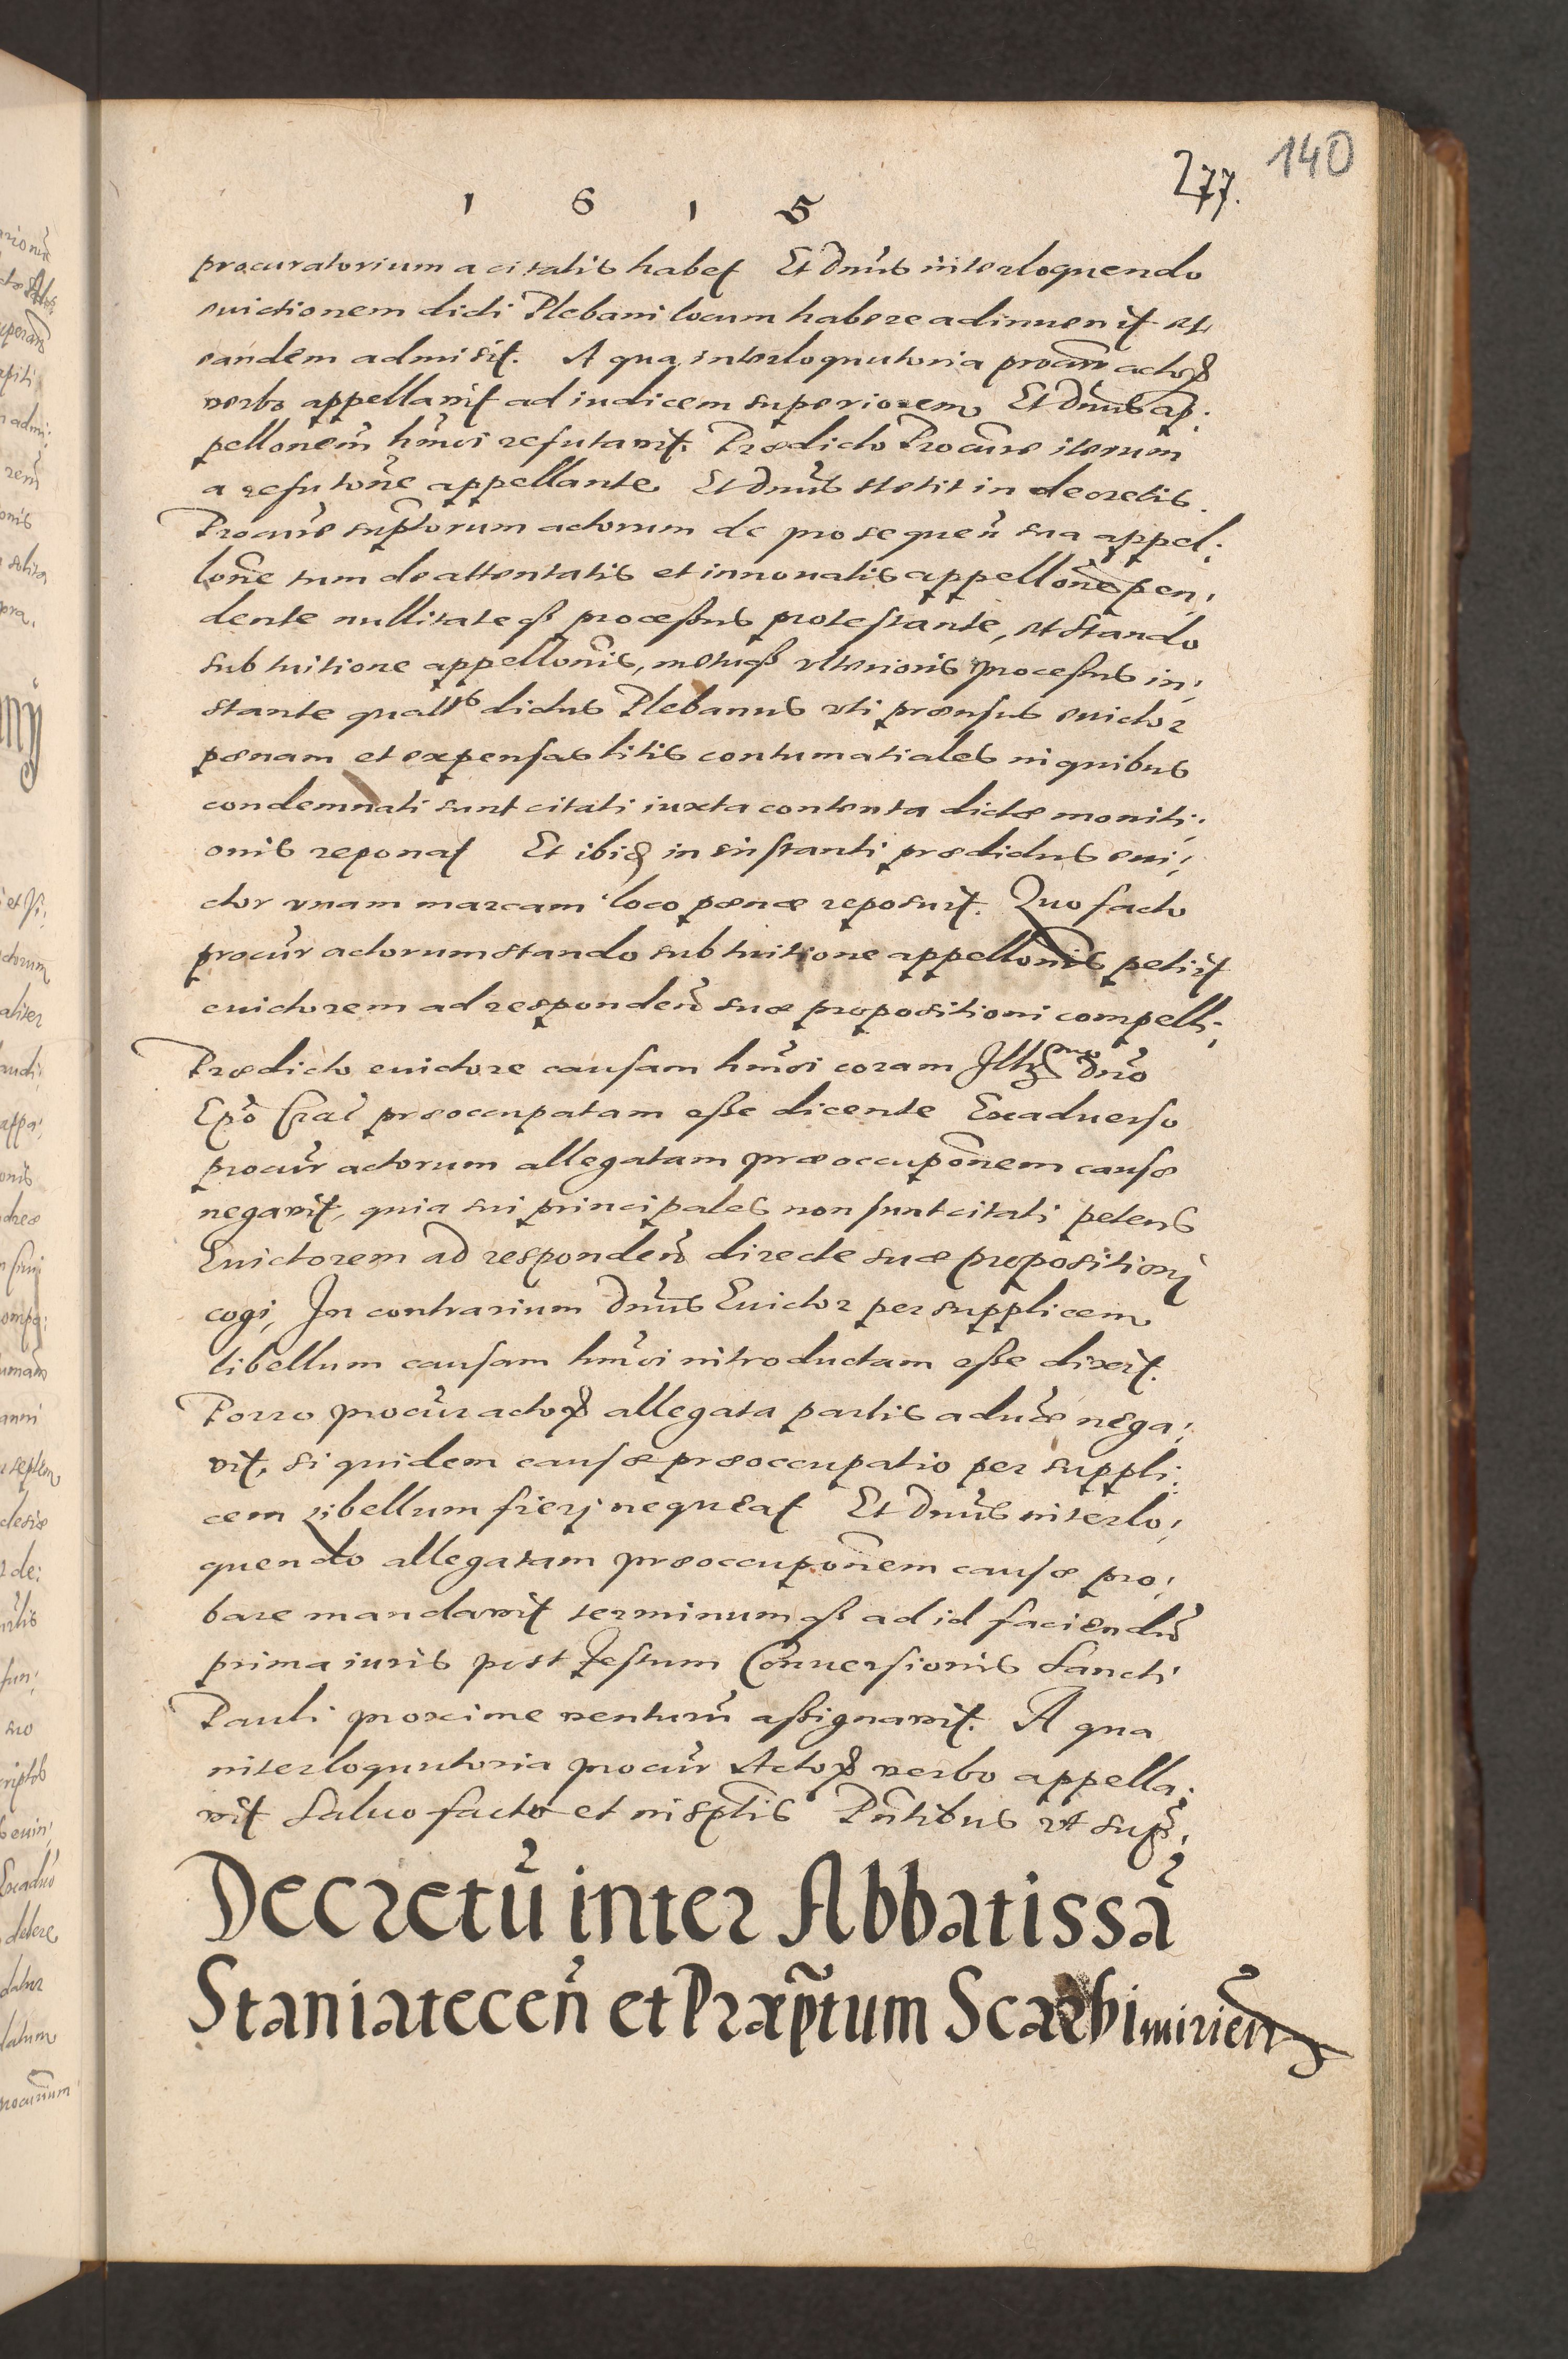 140
277.
1 6 1 5
procuratorium a citatis habet Et Dnus interloquendo
euictionem dicti Plebani locum habere adinuenit et
eandem admisit. A qua interloquutoria procur actor
verbo appellauit ad iudicem superiorem Et Dnus ap:
pellonem hmoi refutauit. Prædicto Procure iterum
a refutone appellante Et Dnus stetit in decretis.
Procure suptorum actorum de prosequen sua appel:
lone tum de attentatis et innouatis appellone pen:
dente nullitateq processus protestante, et stando
sub tuitione appellonis, metuq vlterioris processus in:
stante qualtus dictus Plebanus vti prænsus euictor
pœnam et expensas litis contumatiales in quibus
condemnati sunt citati iuxta contenta dictæ moniti:
onis reponat Et ibid in instanti prædictus eui:
ctor vnam marcam loco pœnæ reposuit. Quo facto
procur actorum stando sub tuitione appellonis petijt
euictorem ad responden suæ propositioni compelli,
Prædicto euictore causam hmoi coram Illmo Dno
Epo Crac præoccupatam esse dicente Exaduerso
procur actorum allegatam præoccuponem causæ
negauit, quia sui principales non sunt citati petens
Euictorem ad responden directe suæ propositioni
cogi, In contrarium Dnus Euictor per supplicem
libellum causam hmoi introductam esse dixit.
Porro procur actor allegata partis aduræ nega:
uit, siquidem causæ præoccupatio per suppli:
cem libellum fieri nequeat Et Dnus interlo:
quendo allegatam præoccuponem causæ pro:
bare mandauit terminumq ad id faciendu
prima iuris post festum Conuersionis Sancti
Pauli proxime venturu assignauit. A qua
interloquutoria procur Actor verbo appella:
uit saluo facto et insptis Pntibus vt sup:
Decretu inter Abbatissa
Staniatecen et Præptum Scarbimirien